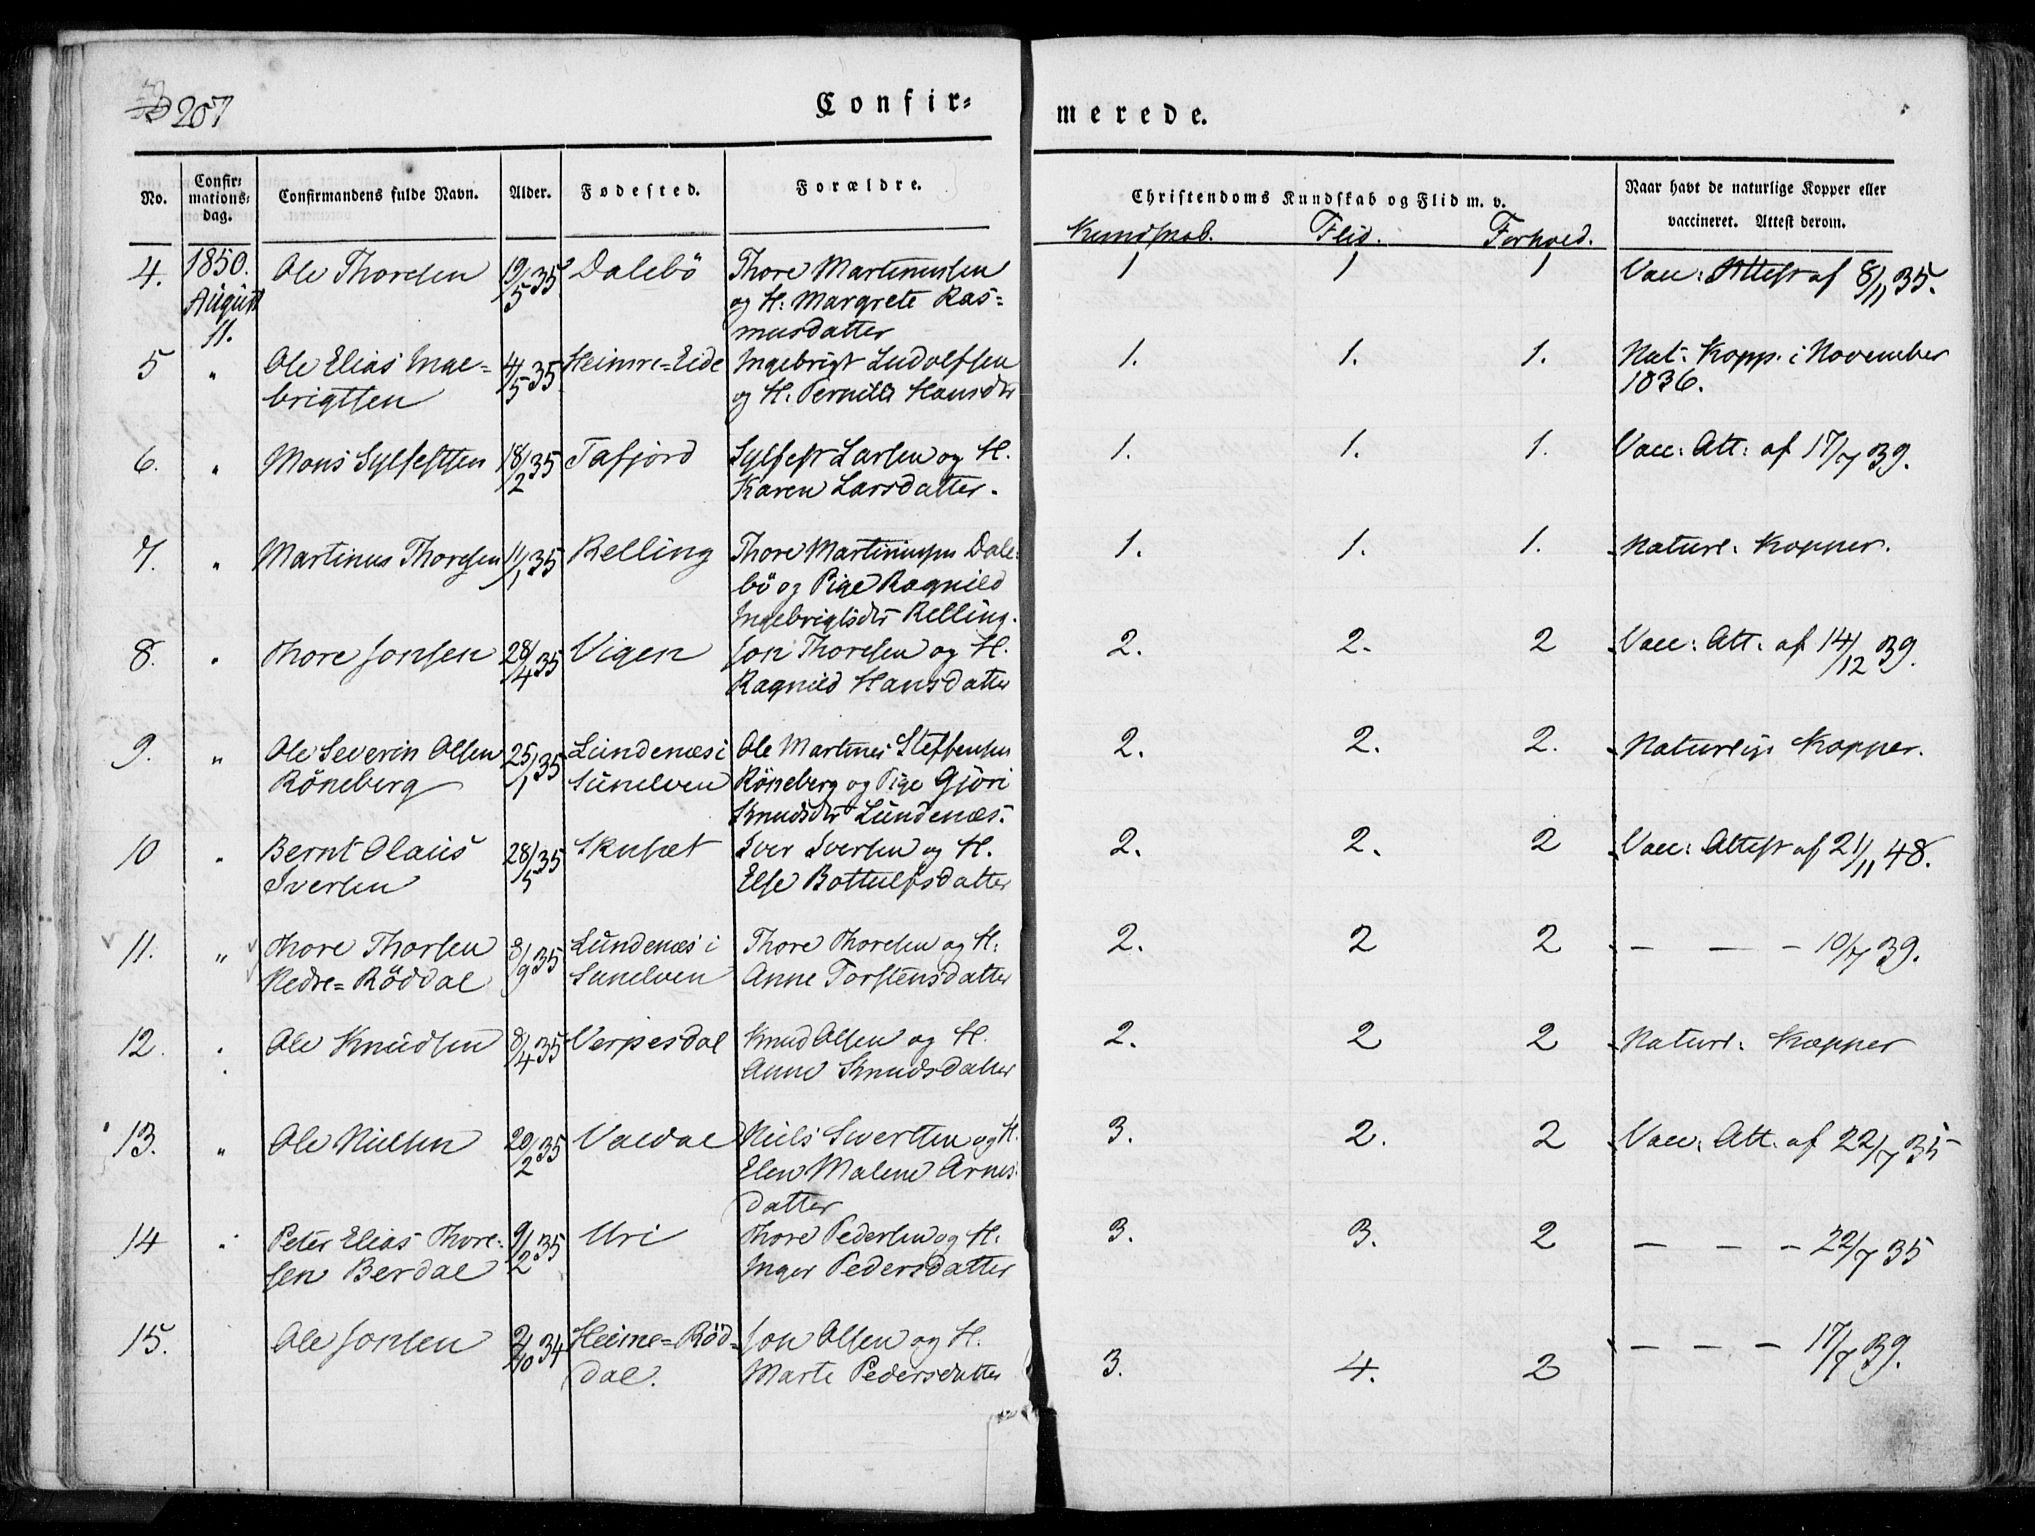 207
Confir=
merede.
No.
Confir=
mations=
dag.
Confirmandens fulde Navn.
Alder.
Fødested.
Forældre.
Christendoms Kundskab og Flid m. v.
Naar havt de naturlige Kopper eller
vaccineret. Attest derom.
Kundskab. Flid. Forhold.
4. 1850. Ole Thoresen 19/5 35 Dalebö Thore Martinussen 1 1 1 Vac: Attest af 8/11 35.
August og H: Margrete Ras=
11. musdatter
5 " Ole Elias Inge= 4/5 35 Heimre=Eide Ingebrigt Ludolfsen 1. 1. 1. Nat: Kopp. i November
brigtsen og H. Pernille Hansdtr 1836.
6. " Mons Sylfestsen 18/2 35 Tafjord Sylfest Larsen og H. 1. 1. 1. Vac: Att: af 17/7 39.
Karen Larsdatter.
7. " Martinus Thoresen 11/1 35 Relling Thore Martinussen Dale= 1. 1. 1. Naturl: Kopper.
bö og Pige Ragnild
Ingebrigtsdtr Relling.
8. " Thore Jonsen 28/4 35 Vigen Jon Thoresen og H. 2. 2. 2 Vac: Att: af 14/12 39.
Ragnild Hansdatter
9. " Ole Severin Olsen 25/1 35 Lundenæs i Ole Martines Steffensen 2. 2. 2. Naturlige Kopper.
Röneberg Sunelven Röneberg og Pige Gjöri
Knudsdtr Lundenæs.
10 " Bernt Olaus 28/5 35 Skuset Iver Iversen og H. 2. 2. 2 Vac: Attest af 21/11 48.
Iversen Else Bottulfsdatter
11. " Thore Thorsen 3/9 35 Lundenæs i Thore Thoresen og H. 2. 2 2 — — — 10/7 39.
Nedre=Röddal Sunelven Anne Torstensdatter
12. " Ole Knudsen 8/4 35 Verpesdal Knud Olsen og H. 2. 2 2 Naturl: Kopper
Anne Knudsdatter
13. " Ole Nielsen 20/2 35 Valdal Niels Sivertsen og H. 3. 2. 2 Vac: Att. af 22/7 35
Elen Malene Arnes=
datter
14 " Peter Elias Thore= 9/2 35 Uri Thore Pedersen og H. 3. 3. 2 — — — 22/7 35
sen Berdal Inger Pedersdatter
15. Ole Jonsen 2/10 34 Heime=Röd= Jon Olsen og H. 3. 4. 2 — — — 17/7 39.
dal. Marte Pedersdatter